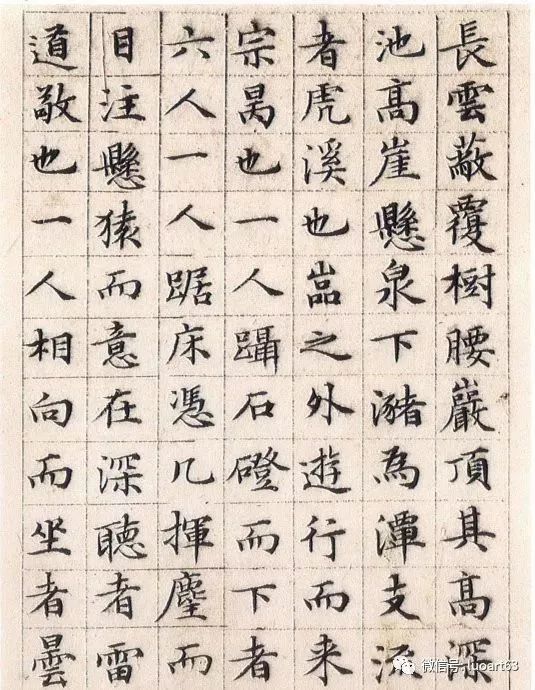 長雲蔽覆樹腰巖頂其髙深
池髙崖懸泉下瀦為潭支流
者虎溪也嵓之外遊行而来
宗昺也一人躡石磴而下者
六人一人踞床憑几揮麈而
目注懸猿而意在深聽者雷
道敬也一人相向而坐者曇
微信号: luoart63